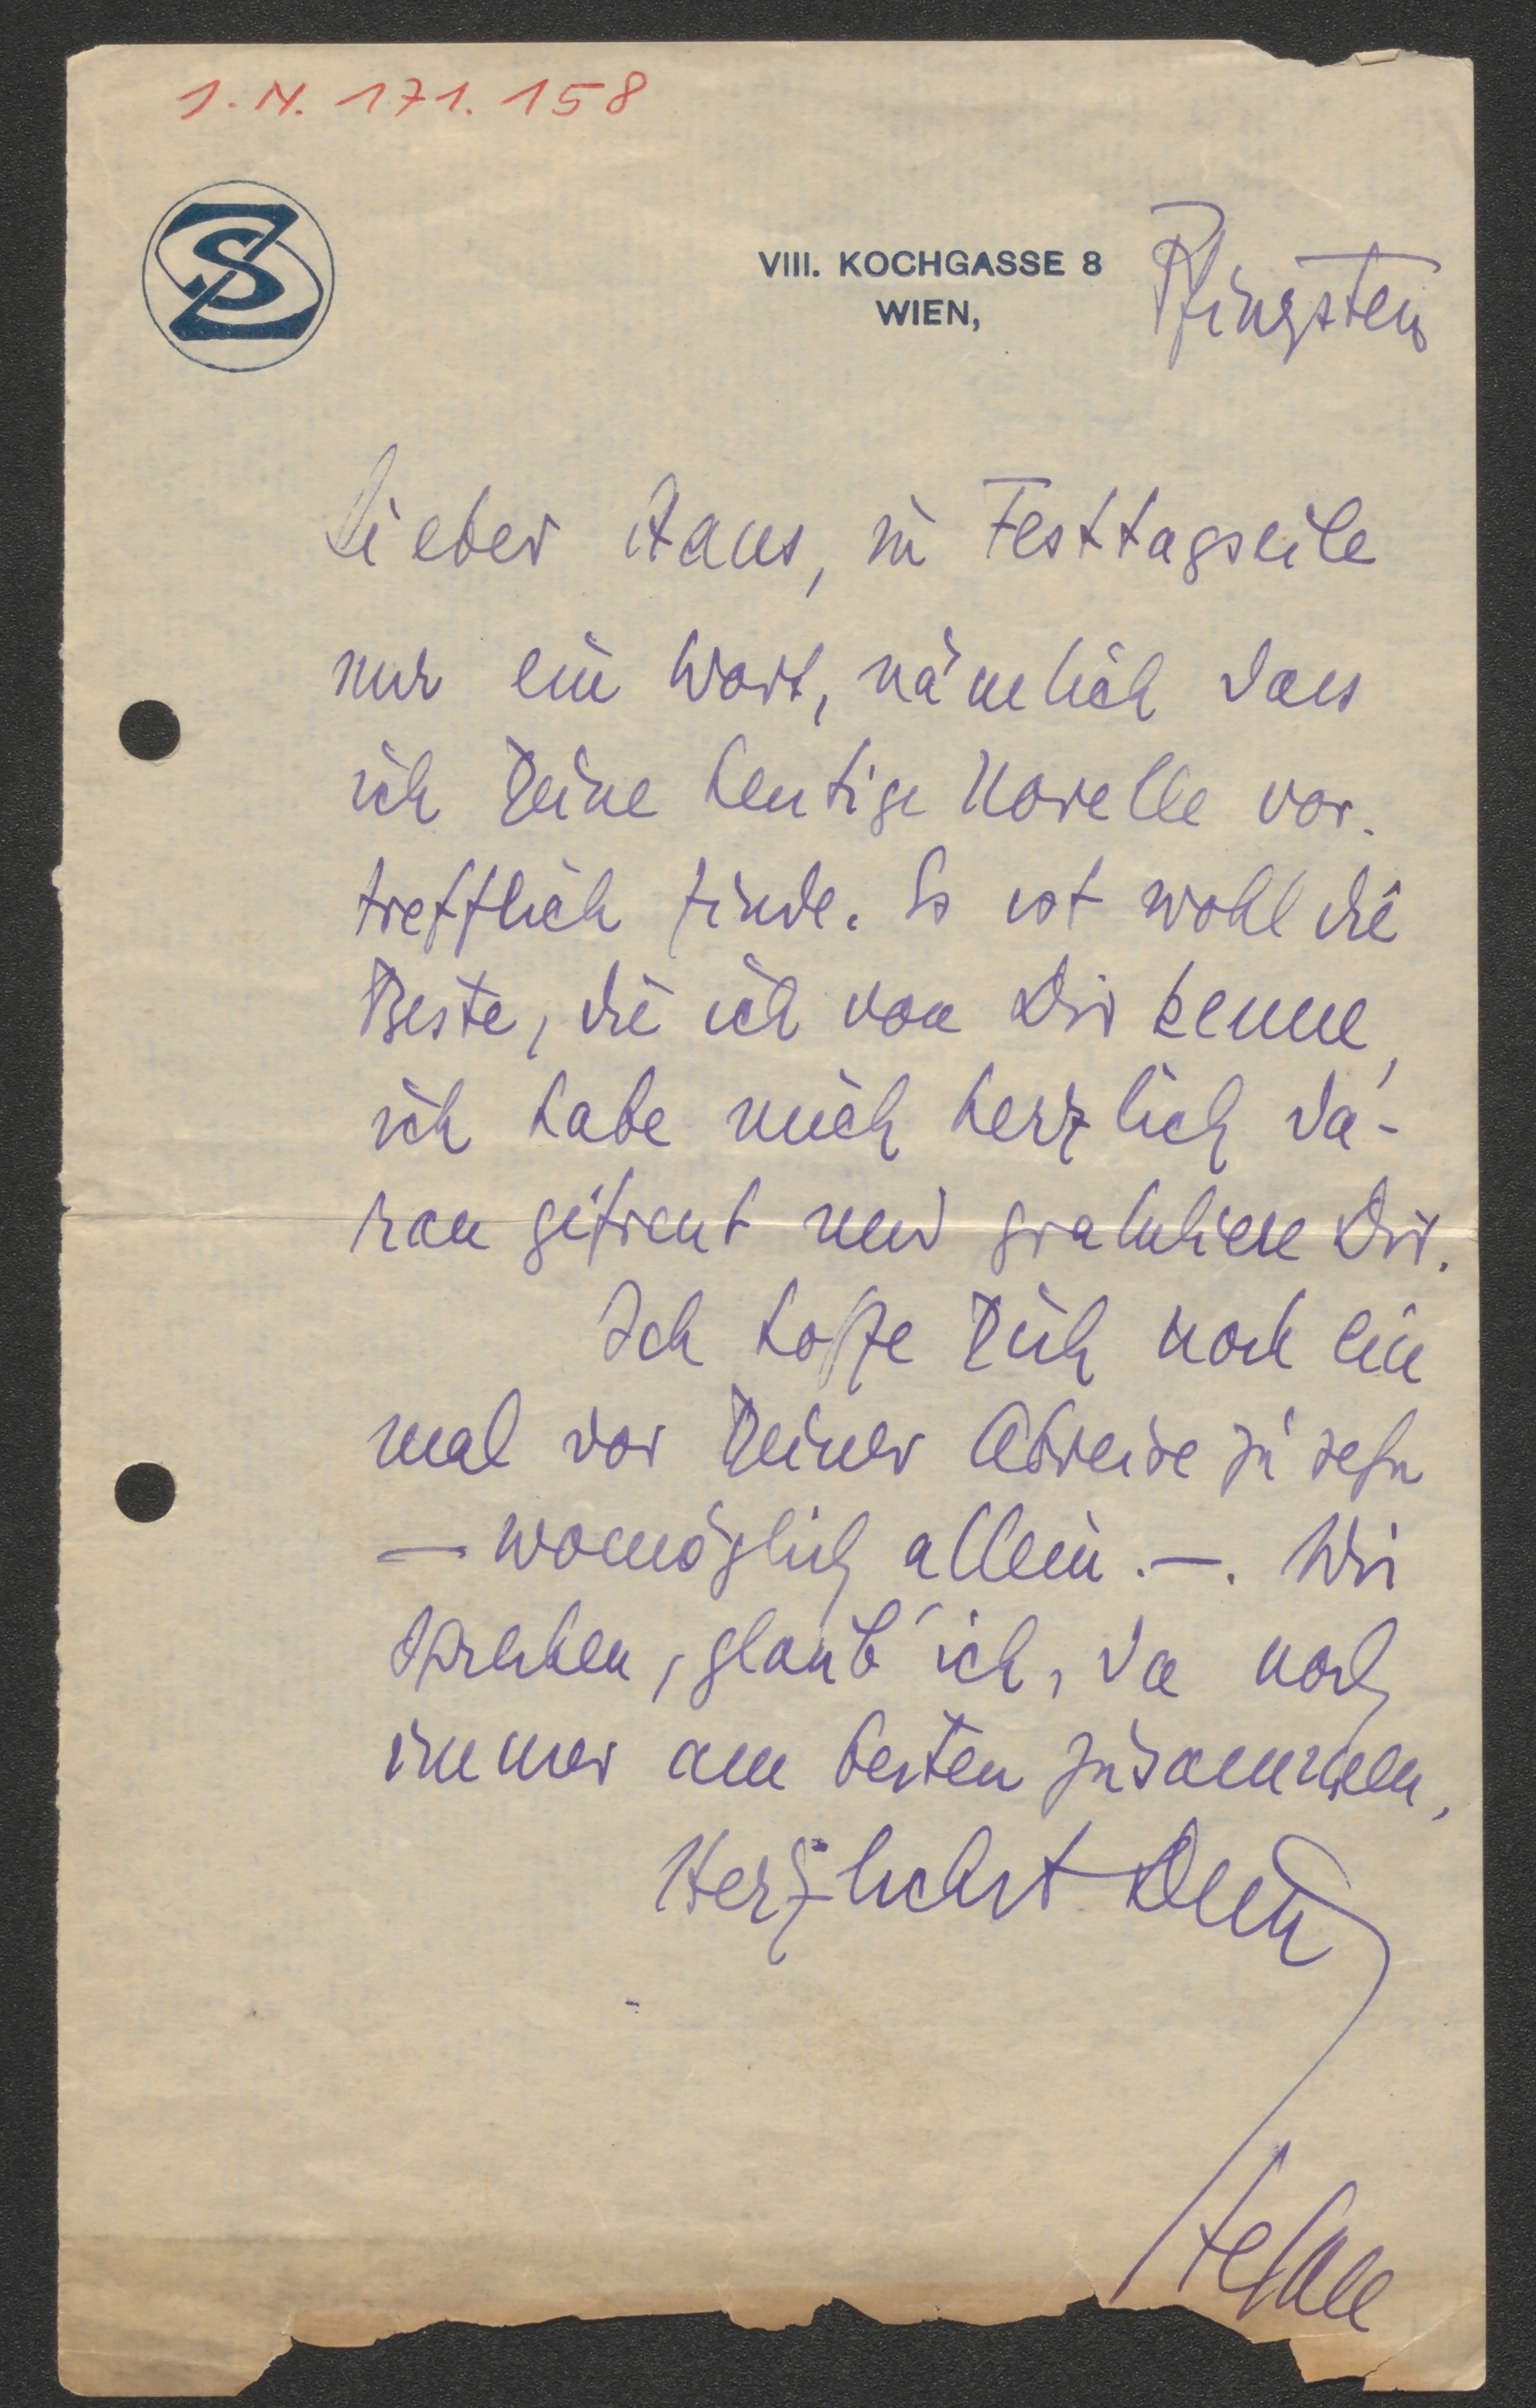 I.N. 171.158
SZ
VIII. KOCHGASSE 8
WIEN,
Pfingsten
Lieber Hans, in Festtagseile
nur ein Wort, nämlich dass
ich Deine heutige Novelle vor-
trefflich finde. Es ist wohl die
Beste, die ich von Dir kenne,
ich habe mich herzlich da-
ran gefreut und gratuliere Dir.
Ich hoffe Dich noch ein
mal vor Deiner Abreise zu sehn
– womöglich allein. –. Wir
sprechen, glaub' ich, da noch
immer am besten zusammen.
Herzlichst Dein
Stefan